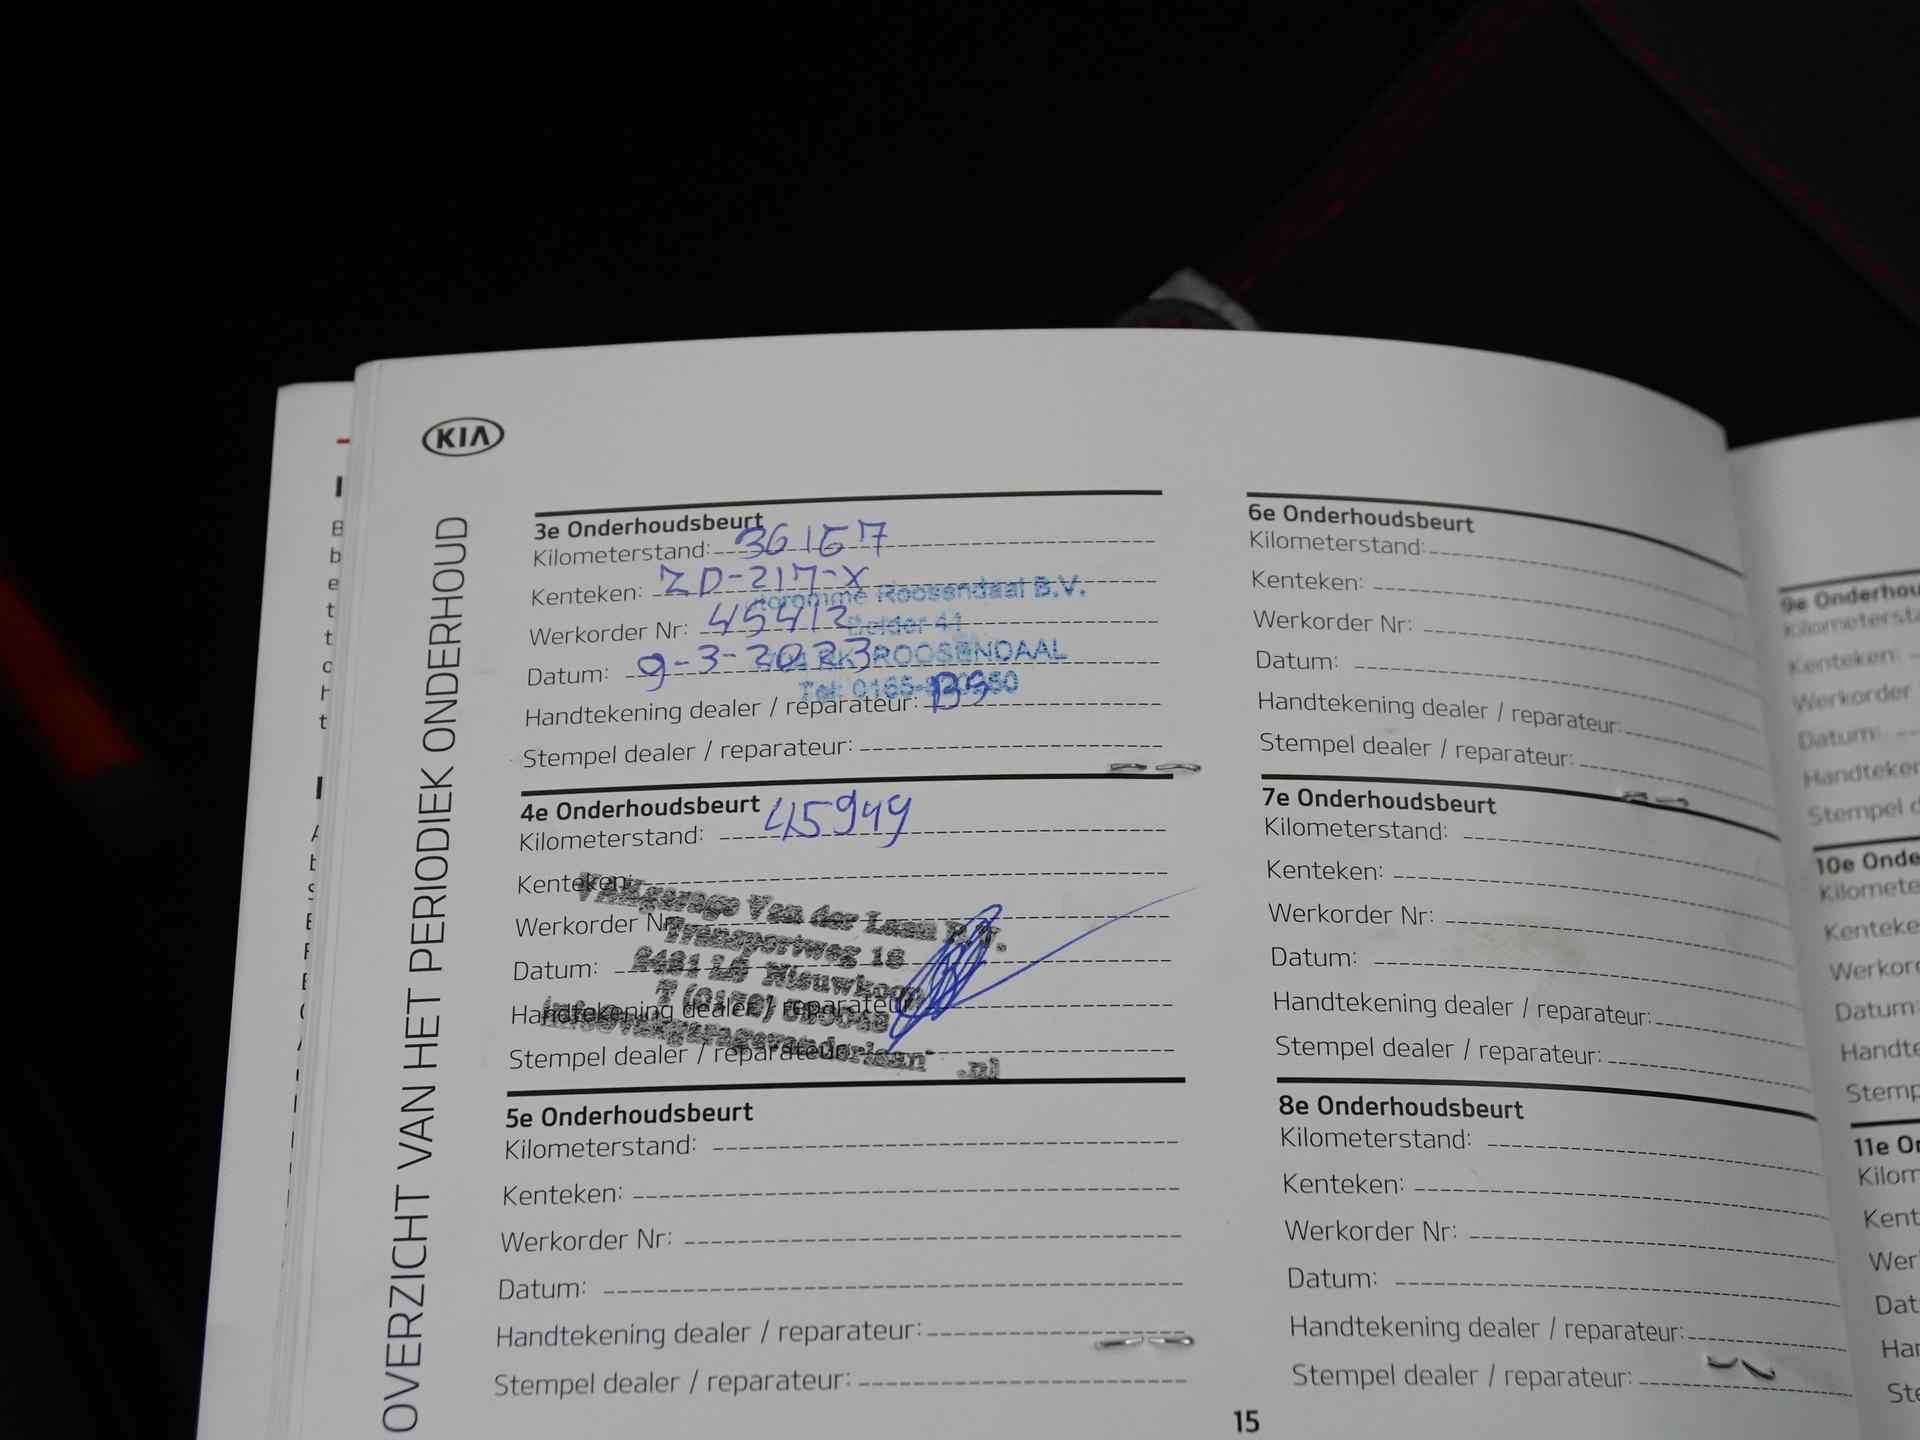 KIA
OVERZICHT VAN HET PERIODIEK ONDERHOUD
3e Onderhoudsbeurt
Kilometerstand: 36167
Kenteken: ZD-217-X
Werkorder Nr: 45412
Datum: 9-3-2023
Handtekening dealer / reparateur:
Stempel dealer / reparateur:
Roosendaal B.V.
Belder 41
ROOSENDAAL
Tel: 0165-
4e Onderhoudsbeurt
Kilometerstand: 45949
Kenteken:
Werkorder Nr
Datum:
Handtekening dealer / reparateur
Stempel dealer / reparateur
Vakgarage Van der Laan B.V.
Transportweg 18
Nieuwkoop
.nl
5e Onderhoudsbeurt
Kilometerstand:
Kenteken:
Werkorder Nr:
Datum:
Handtekening dealer / reparateur:
Stempel dealer / reparateur:
6e Onderhoudsbeurt
Kilometerstand:
Kenteken:
Werkorder Nr:
Datum:
Handtekening dealer / reparateur:
Stempel dealer / reparateur:
7e Onderhoudsbeurt
Kilometerstand:
Kenteken:
Werkorder Nr:
Datum:
Handtekening dealer / reparateur:
Stempel dealer / reparateur:
8e Onderhoudsbeurt
Kilometerstand:
Kenteken:
Werkorder Nr:
Datum:
Handtekening dealer / reparateur:
Stempel dealer / reparateur:
15
9e Onderhou
Kilometersta
Kenteken:
Werkorder
Datum:
Handteken
Stempel d
10e Onde
Kilomete
Kenteke
Werkor
Datum:
Handte
Stemp
11e On
Kilom
Kent
Wer
Dat
Har
Ste